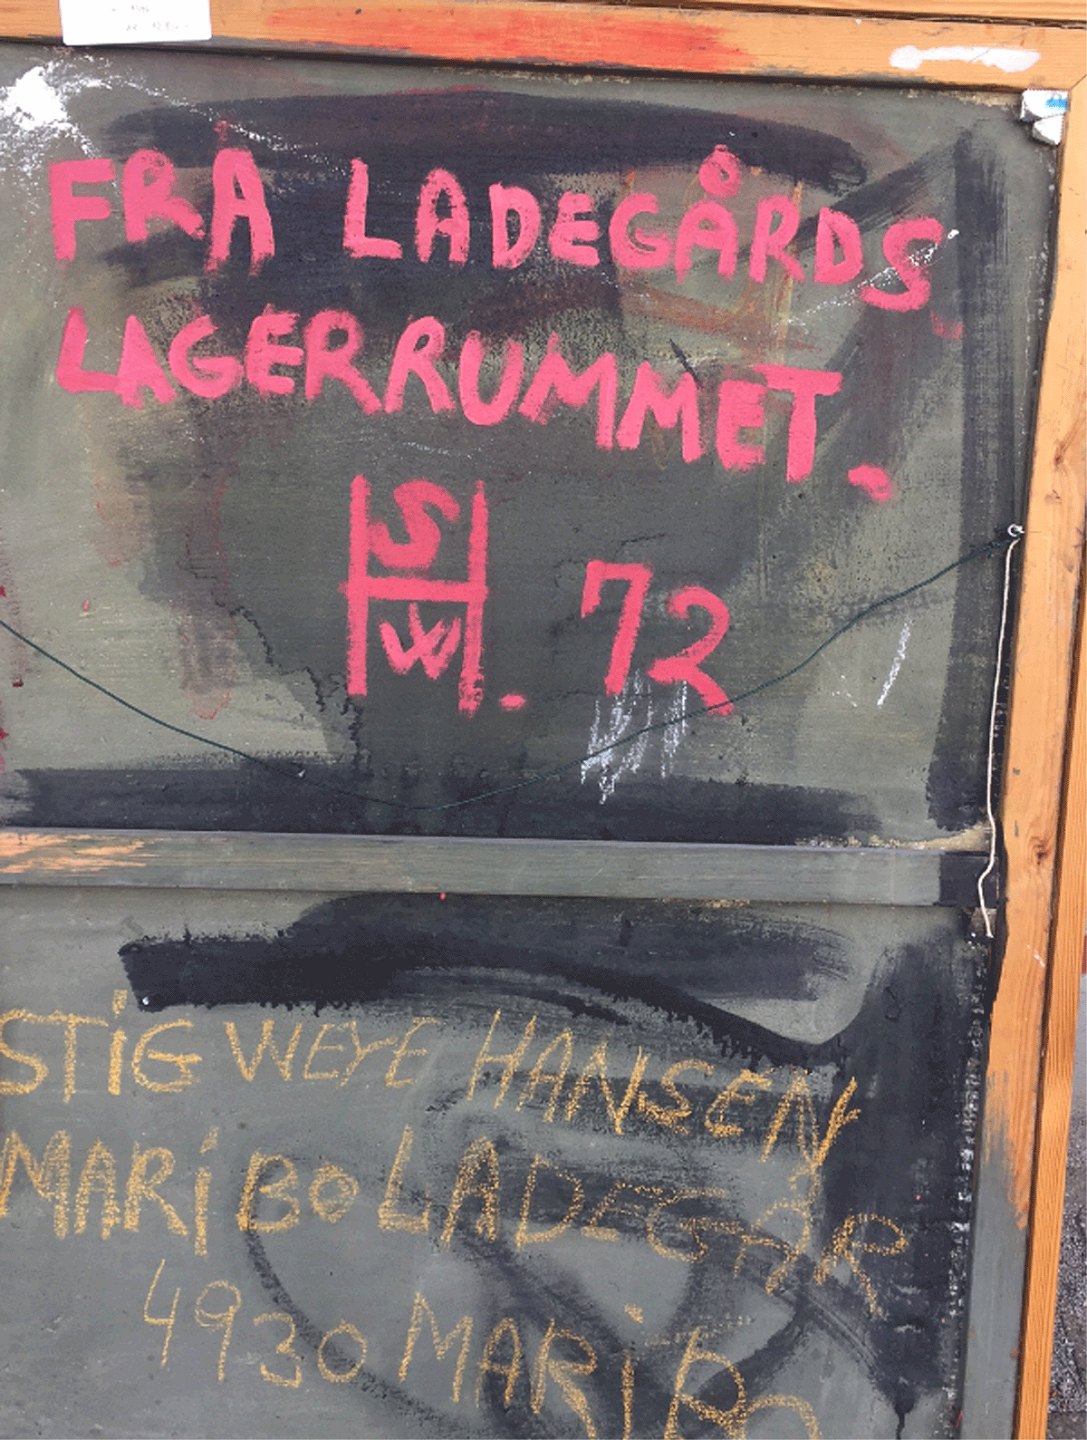 FRÅ LADEGÅRDS
LAGERRUMMET.
SHW. 72
STiG WEYE HANSEN
MARiBO LADEGÅR
4930 MARiBO